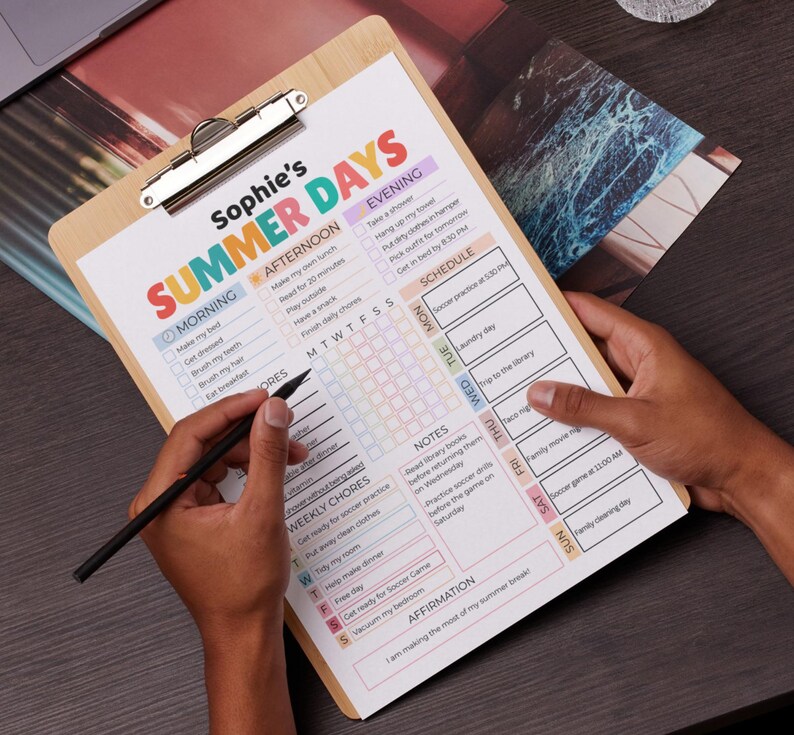 Sophie's
SUMMER DAYS
MORNING
Make my bed
Get dressed
Brush my teeth
Brush my hair
Eat breakfast
AFTERNOON
Make my own lunch
Read for 20 minutes
Play outside
Have a snack
Finish daily chores
EVENING
Take a shower
Hang up my towel
Put dirty clothes in hamper
Pick outfit for tomorrow
Get in bed by 8:30 PM
M T W T F S S
after dinner
vitamin
shower without being asked
WEEKLY CHORES
Get ready for soccer practice
T
Put away clean clothes
W
Tidy my room
T
Help make dinner
F
Free day
S
Get ready for Soccer Game
S
Vacuum my bedroom
NOTES
-Read library books
before returning them
on Wednesday
-Practice soccer drills
before the game on
Saturday
SCHEDULE
MON
Soccer practice at 5:30 PM
TUE
Laundry day
WED
Trip to the library
THU
Taco
FRI
Family movie
SAT
Soccer game at 11:00 AM
SUN
Family cleaning day
AFFIRMATION
I am making the most of my summer break!